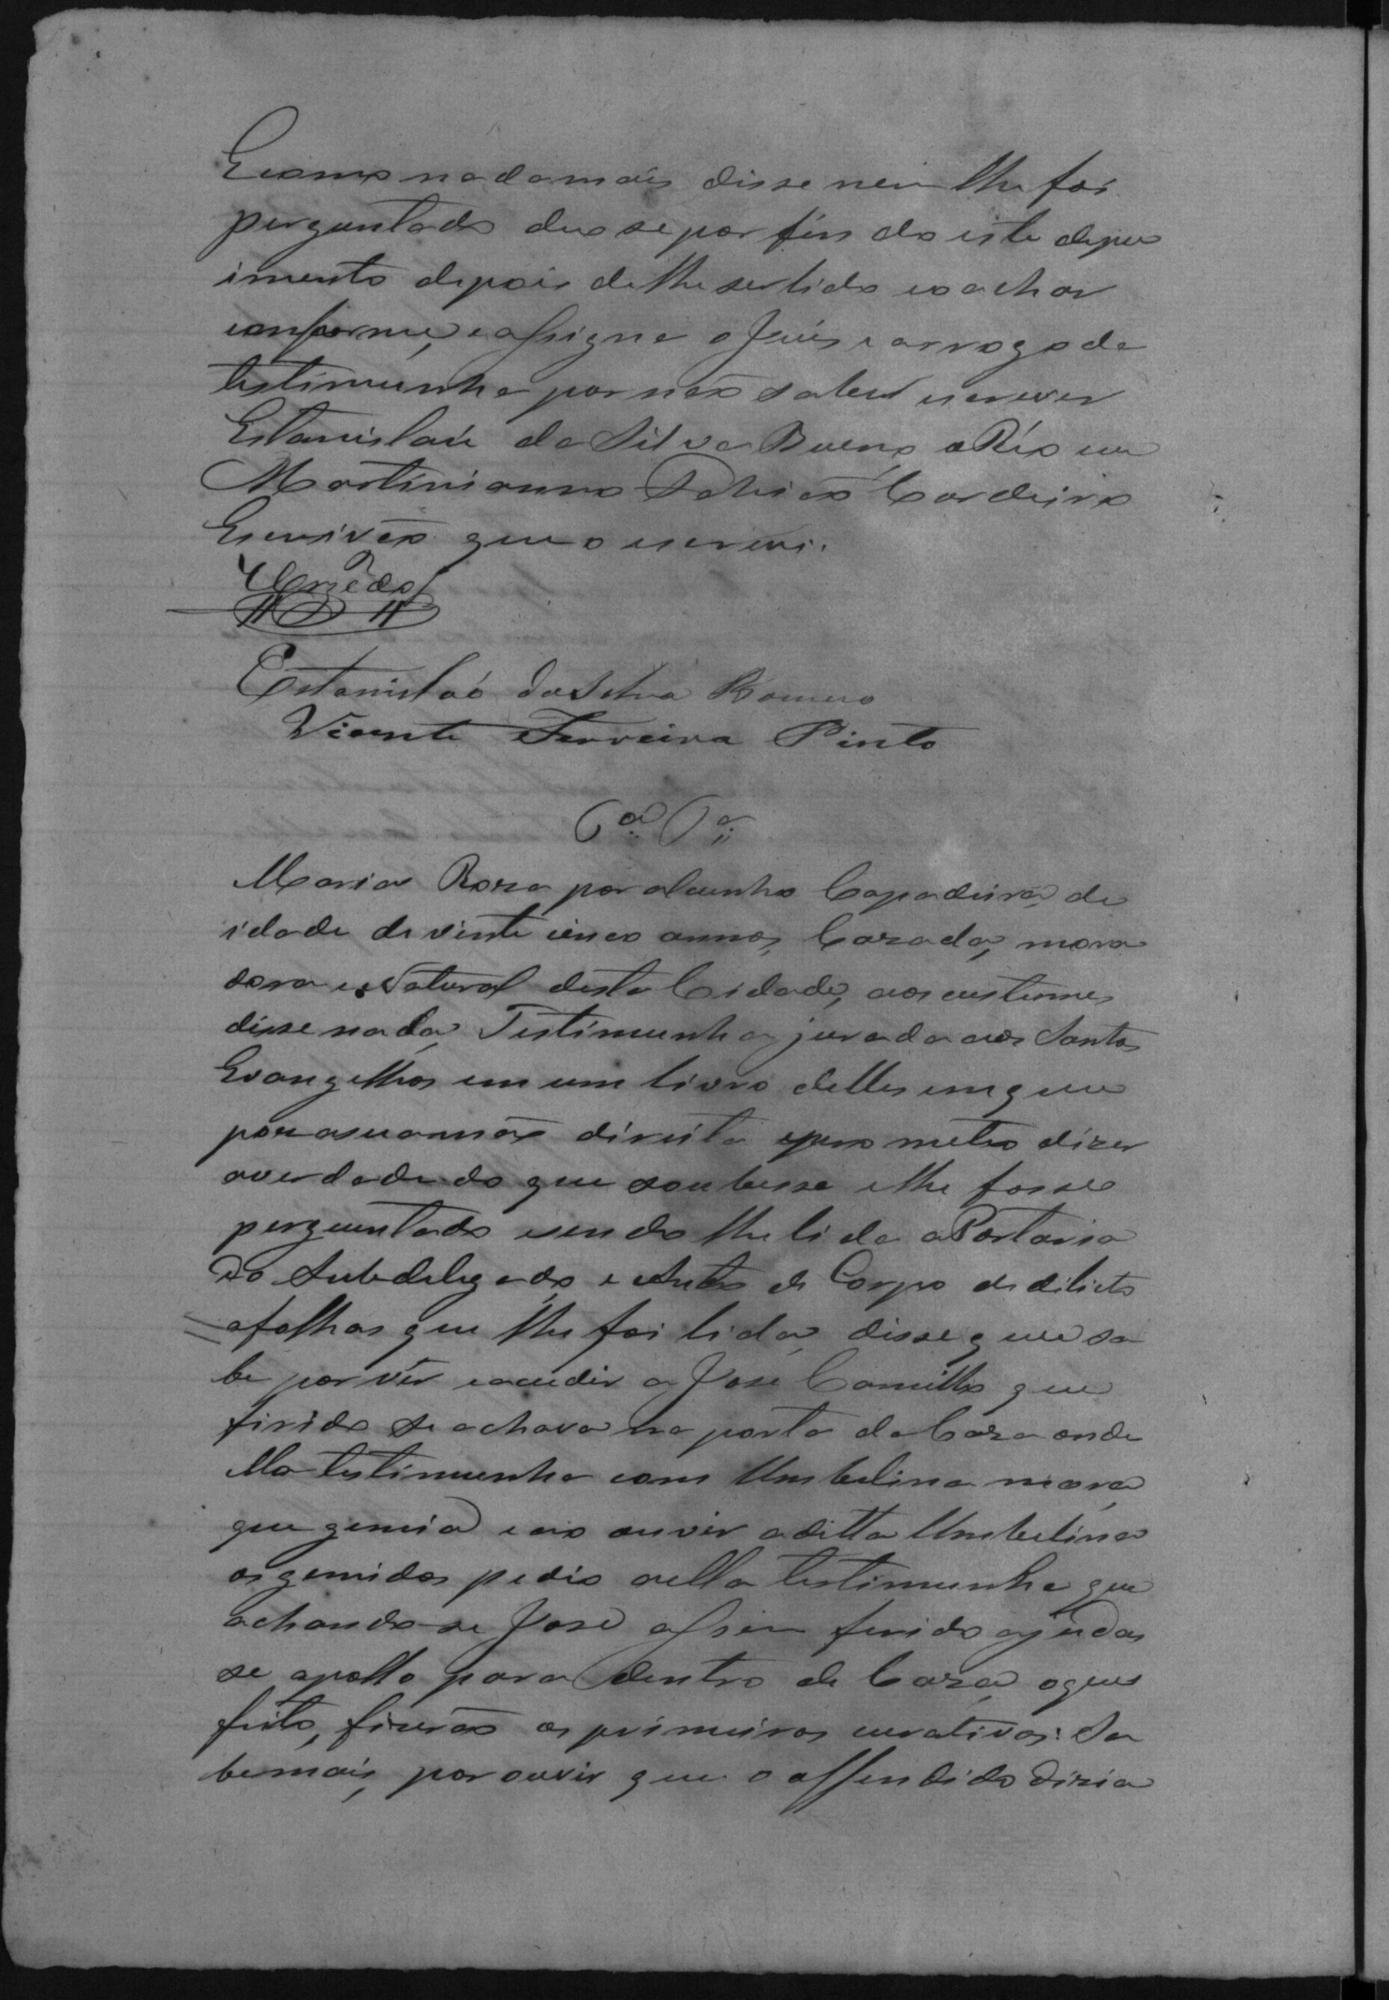 E como nada mais disse nem lhe foi
perguntado deu se por findo este depo
imento depois de lhe ser lido e o achar
conforme, e assigna o Juis e a rogo da
testimunha por não saber escrever
Estanislau da Silva Bueno, o Réo eu
Martinianno Cordeiro
Escrivão que o escrevi.
Estanisláo da Silva Bueno
Vicente Ferreira Pinto
Maria Roza por alcunha Capadeira, de
idade de vinte cinco annos, Cazada, mora
dora e Natural desta Cidade, aos custumes
disse nada. Testimunha jurada aos Santos
Evangelhos em um livro delles em que
poz a sua mão direita e prometeo dizer
a verdade do que soubesse e lhe fosse
perguntado e sendo lhe lida a Portaria
do Subdelegado, e Auto de Corpo de delicto
a folhas que lhe foi lida, disse que sa
be por vêr e acudir a José Camillo que
firido se achava na porta da Caza onde
ella testimunha com Umbelina mora,
que gemia e ao ouvir a ditta Umbelina
os gemidos pedio a ella testimunha que
achando-se José assim ferido ajudas
se a pol-lo para dentro de Caza, o que
feito, fizerão os primeiros curativos. Sa
be mais, por ouvir que o offendido dizia